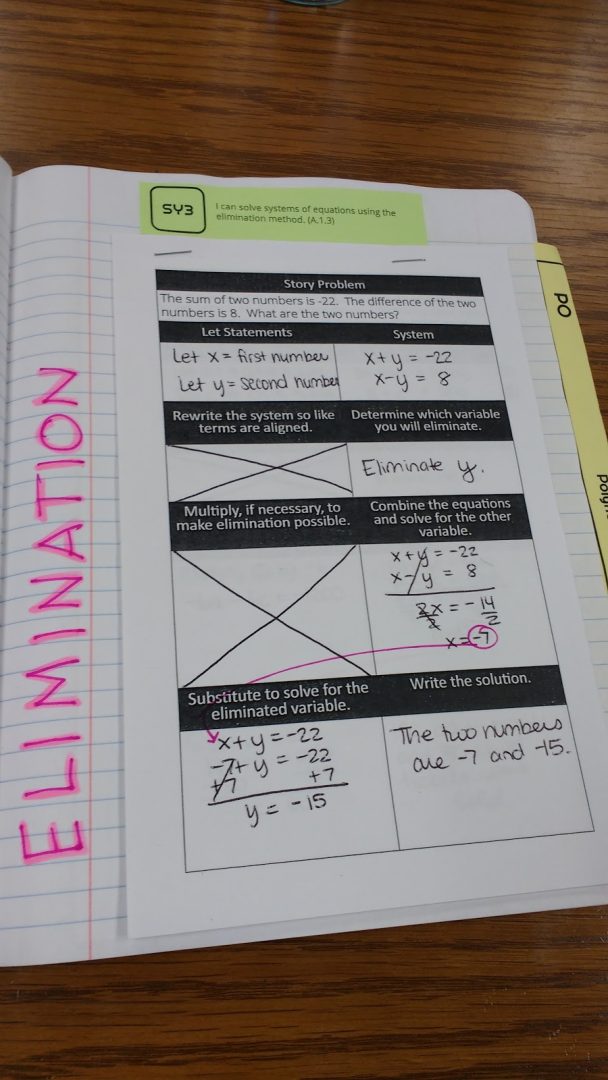 SY3
I can solve systems of equations using the
elimination method. (A.1.3)
PO
ELIMINATION
Story Problem
The sum of two numbers is -22. The difference of the two
numbers is 8. What are the two numbers?
Let Statements
System
Let x = first number
Let y = second number
x + y = -22
x - y = 8
Rewrite the system so like
terms are aligned.
Determine which variable
you will eliminate.
Eliminate y.
Multiply, if necessary, to
make elimination possible.
Combine the equations
and solve for the other
variable.
x + y = -22
x - y = 8
2x = -14
2 2
x = -7
Substitute to solve for the
eliminated variable.
Write the solution.
x + y = -22
-7 + y = -22
+7 +7
y = -15
The two numbers
are -7 and -15.